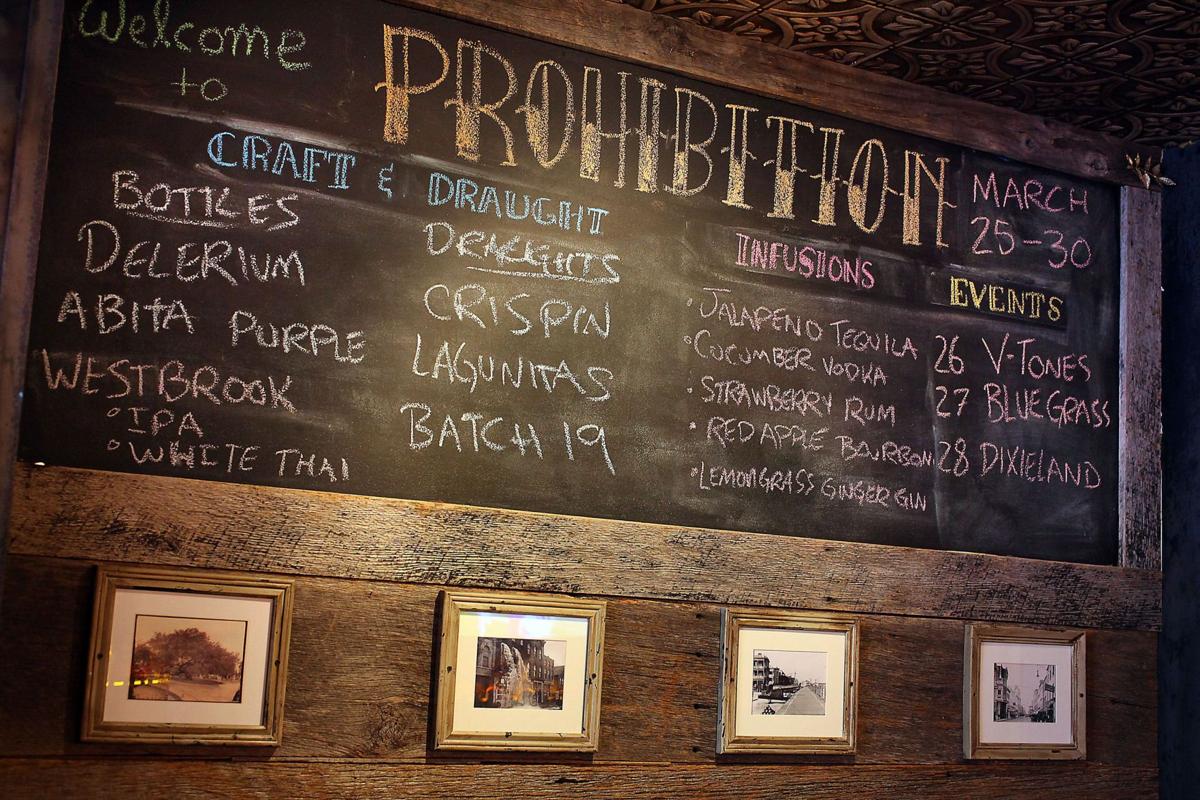 Welcome
to
PROHIBITION
MARCH
25-30
CRAFT & DRAUGHT
BOTTLES
DELERIUM
ABITA PURPLE
WESTBROOK
°IPA
°WHITE THAI
DRAUGHTS
CRISPIN
LAGUNITAS
BATCH 19
INFUSIONS
• JALAPENO TEQUILA
• CUCUMBER VODKA
• STRAWBERRY RUM
• RED APPLE BOURBON
• LEMONGRASS GINGER GIN
EVENTS
26 V-TONES
27 BLUEGRASS
28 DIXIELAND